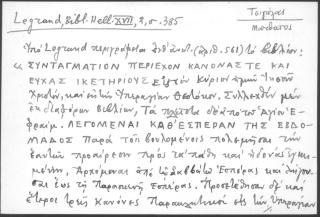 Legrand, Bibl. Hell. XVII, 2, σ. 385
Τσιγάρας
Ὑπὸ Legrand περιγράφεται (ἀρ. 561) τὸ βιβλίον:
« ΣΥΝΤΑΓΜΑΤΙΟΝ ΠΕΡΙΕΧΟΝ ΚΑΝΟΝΑΣ ΤΕ ΚΑΙ
ΕΥΧΑΣ ΙΚΕΤΗΡΙΟΥΣ Εἰς τὸν Κύριον ἡμῶν Ἰησοῦν
Χριστόν, καὶ εἰς τὴν Ὑπεραγίαν Θεοτόκον, Συλλεχθὲν μὲν
ἐκ διαφόρων βιβλίων, Τὰ πλεῖστα δὲ ἀπὸ τοῦ Ἁγίου Ἐ-
φραίμ. ΛΕΓΟΜΕΝΑΙ ΚΑΘ' ΕΣΠΕΡΑΝ ΤΗΣ ΕΒΔΟ-
ΜΑΔΟΣ Παρὰ τοῦ βουλομένου πολεμῆσαι τὴν
ἑαυτοῦ προαίρεσιν πρὸς τὰ πάθη καὶ ἡδονὰς
Ἀρχόμεναι ἀπὸ Σαββάτῳ Ἑσπέρας καὶ λήγου-
σαι ἕως τῇ Παρασκευῇ Ἑσπέρας. Προσετέθησαν δὲ καὶ
ἕτεροι τρεῖς Κανόνες Παρακλητικοὶ εἰς τὴν Ὑπεραγίαν